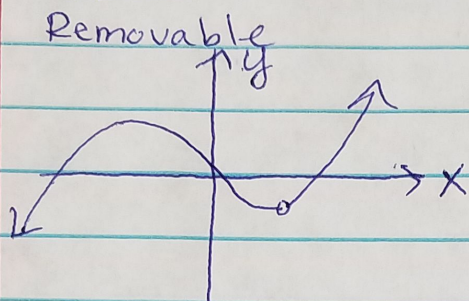 Removable
y
X